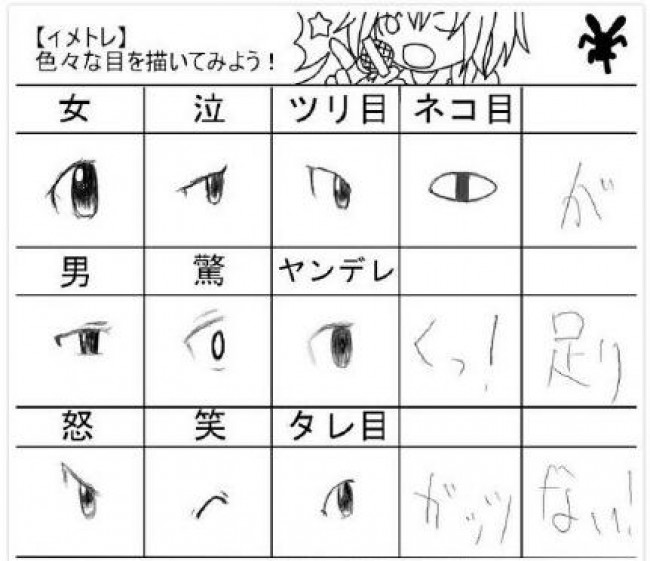 【イメトレ】
色々な目を描いてみよう！
女 泣 ツリ目 ネコ目
が
男 驚 ヤンデレ
くっ！ 足り
怒 笑 タレ目
ガッツ ない！